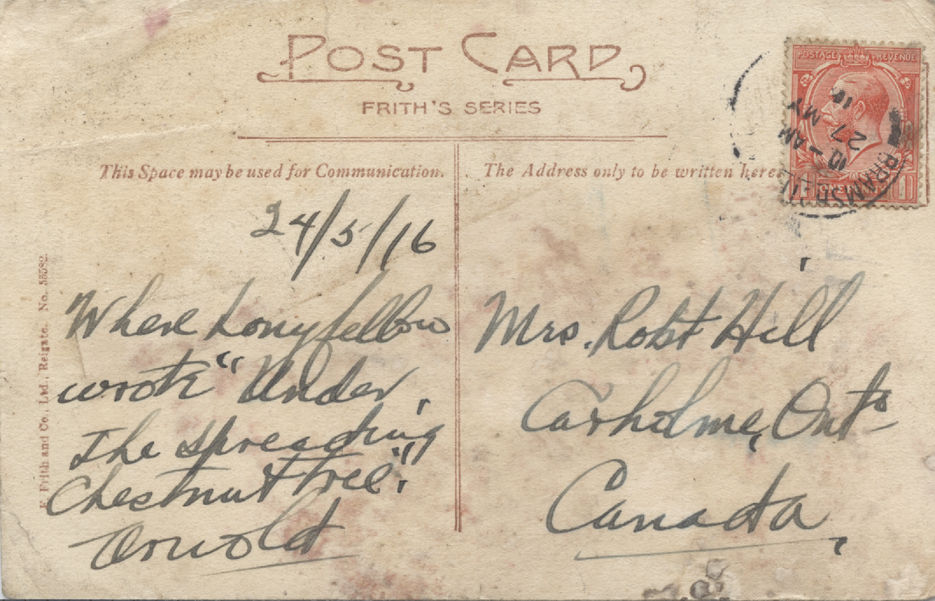 POST CARD
FRITH'S SERIES
This Space may be used for Communication.
The Address only to be written here
POSTAGE REVENUE
10 - AM
27 MY
24/5/16
Where Longfellow
wrote "Under
The spreading
Chestnut Tree".
Arnold
Mrs. Robt Hill
Carholme, Ont
Canada
F. Frith and Co., Ltd., Reigate. No.